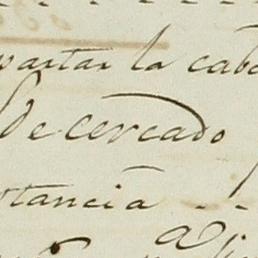 partar la cabe
de cercado
stancia